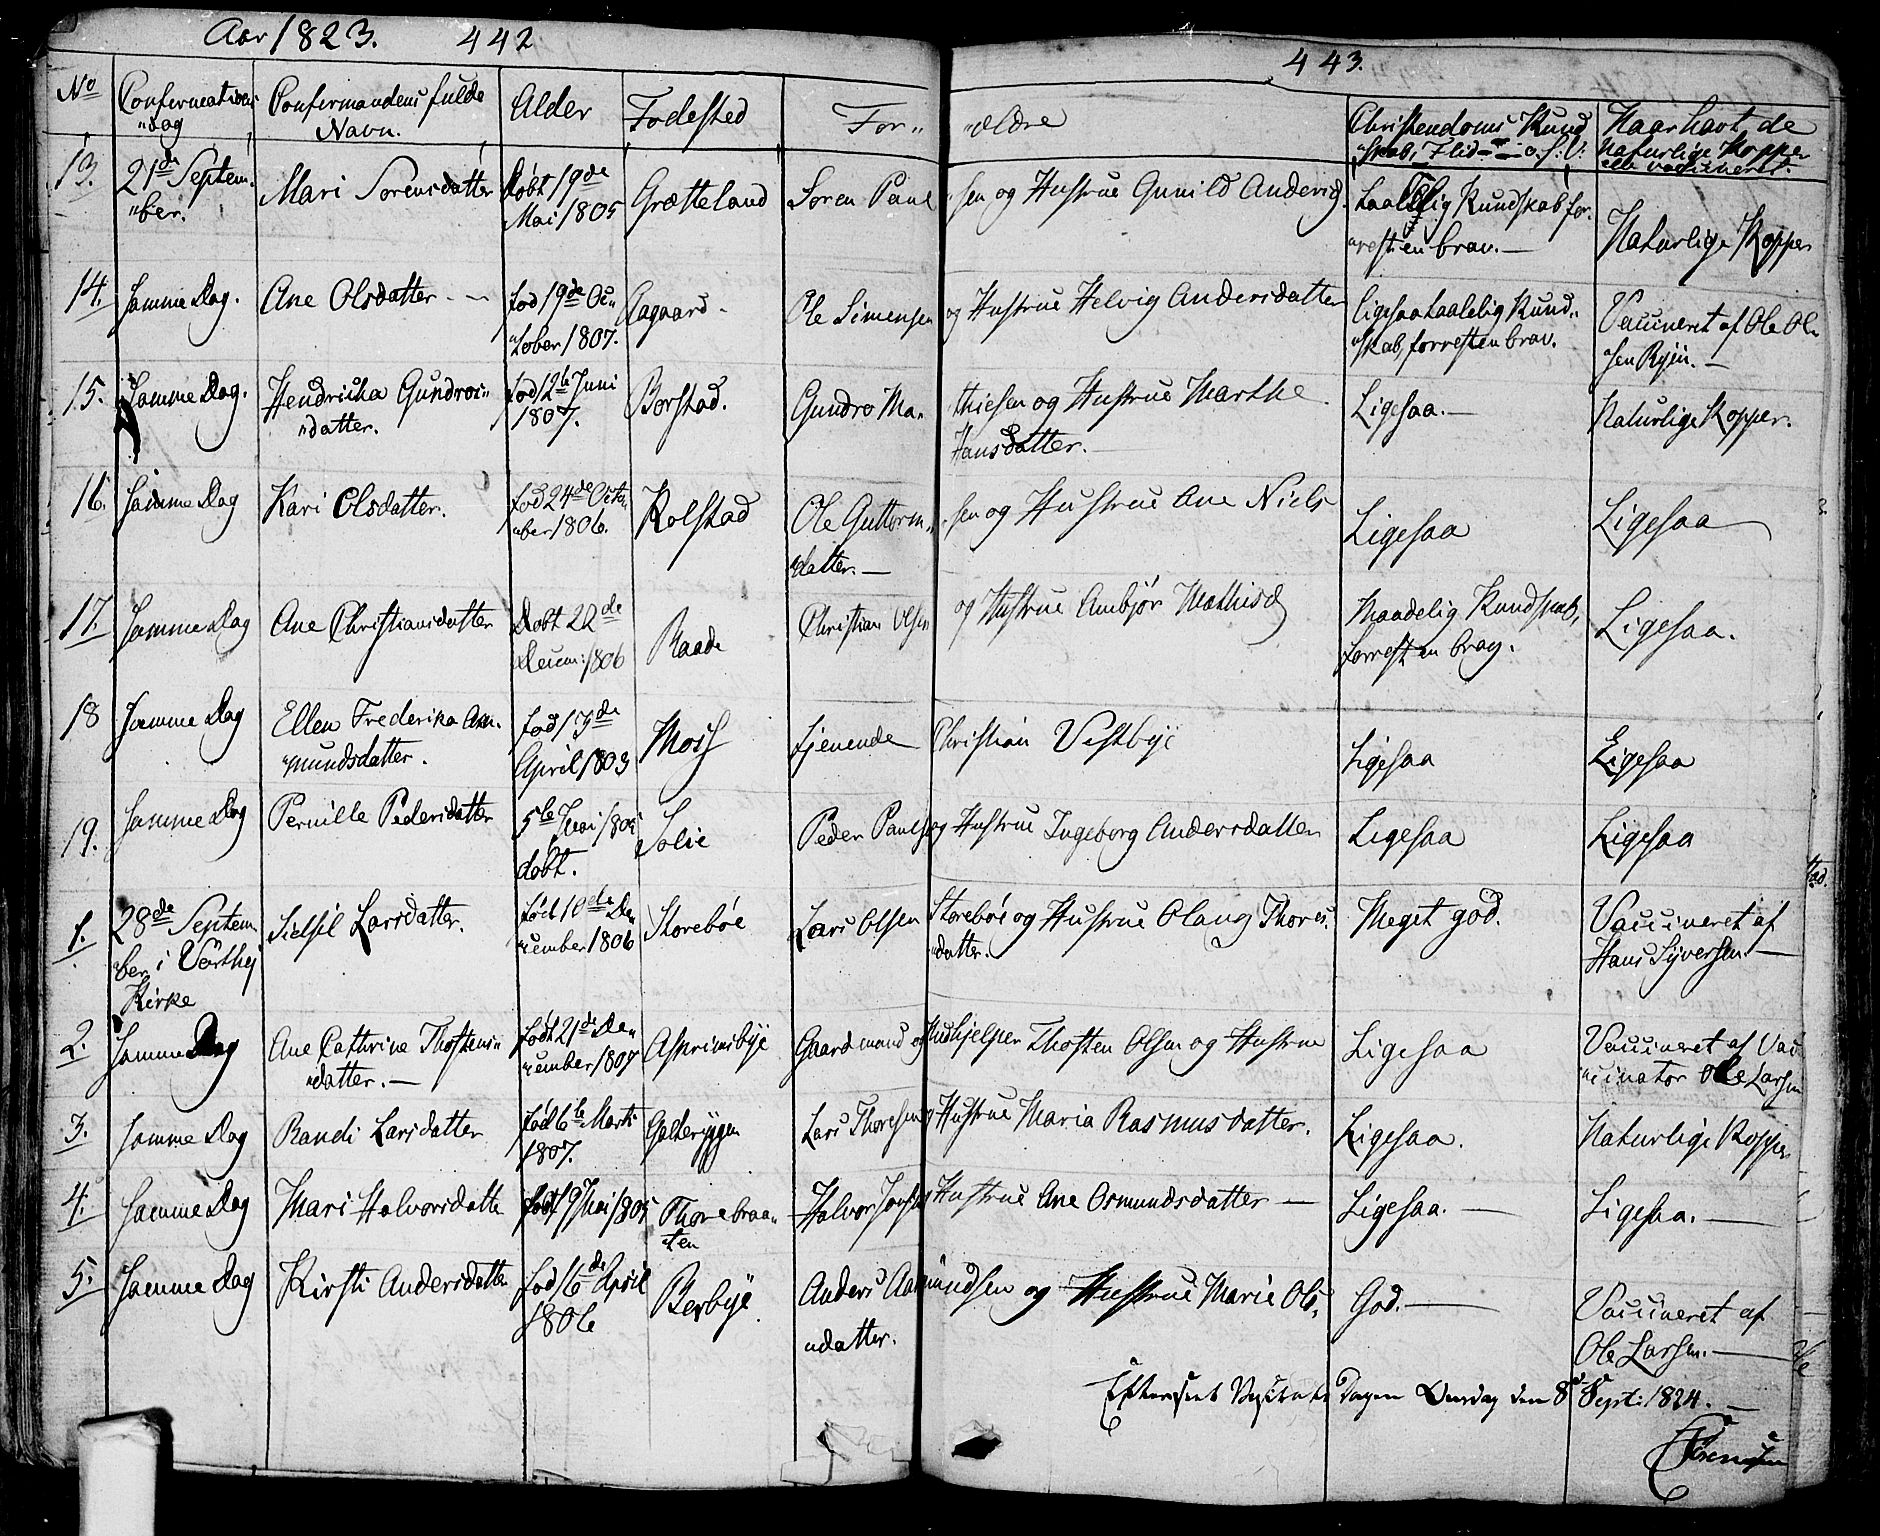 Aar 1823. 442
443.
No Confirmations dag Confirmandens fulde Navn. Alder Fødested For„ „ældre Christendoms Kund„ skab, Flid o.s.v. Naar havt de Naturlige Kopper ell. vaccineret.
13. 21de Septem„ „ber. Mari Sørensdatter Døbt 19de Mai 1805 Grætteland Søren Paul„ „sen og Hustrue Gunild Andersd. Taalelig Kundskab for„ „resten brav. — Naturlige Kopper
14. Samme Dag. Ane Olsdatter — født 19de Oc„ „tober 1807. Aagaard. Ole Simensen og Hustrue Helvig Andersdatter ligesaa taalelig Kund„ „skab, forresten brav. Vaccineret af Ole Ol„ „sen Ryen. —
15. Samme Dag. Hendricka Gundros„ „datter. født 12te Juni 1807. Borstad. Gundro Ma„ „thiesen og Hustrue Marthe Hansdatter. — Ligesaa. — Naturlige Kopper.
16. Samme Dag Kari Olsdatter. født 24de Octo„ „ber 1806. Kolstad Ole Guttorm„ „sen og Hustrue Ane Niels „datter. — Ligesaa Ligesaa
17. Samme Dag Ane Christiansdatter Døbt 22de Decem: 1806 Raade Christian Olsen og Hustrue Ambjør Mathisd Maadelig Kundskab, forresten brav. Ligesaa.
18 Samme Dag Ellen Frederika Am„ „mundsdatter. født 13de April 1803 Moss tjenende Christian Vestbye Ligesaa Ligesaa
19. Samme Dag Pernille Pedersdatter 5te Mai 1805 døbt. Solie Peder Pauls og Hustrue Ingeborg Andersdatter Ligesaa Ligesaa
1. 28de Septem„ „ber i Vørthej Kirke Sidsil Larsdatter. født 10de De„ „cember 1806 Storebøe Lars Olsen Storebøe og Hustrue Olaug Thores„ „datter. Meget god. Vaccineret af Hans Syversen. —
2. Samme Dag Ane Cathrine Thostens„ „datter. — født 21de De„ „cember 1807 Asprimsbye Gaardmand og Medhjelper Thosten Olsen og Hustrue Ligesaa Vaccineret af Vac„ „cinator Ole Larsen
3. Samme Dag Randi Larsdatter født 6te Marts 1807. Galderyggen Lars Thoresen og Hustrue Maria Rasmusdatter. Ligesaa. Naturlige Kopper
4. Samme Dag Mari Halvorsdatte født 9 Mai 1805 Thorebraa„ „ten Halvor Hustrue Ane Osmundsdatter — Ligesaa. — Ligesaa. —
5. Samme Dag Kirsti Andersdatter født 16de April 1806 Berbye Anders Aamundsen og Hustrue Marie Ols„ „datter. God. — Vaccineret af Ole Larsen. —
Efterseet Dagen Onsdag den 8de Sept: 1824. —
Sørensen